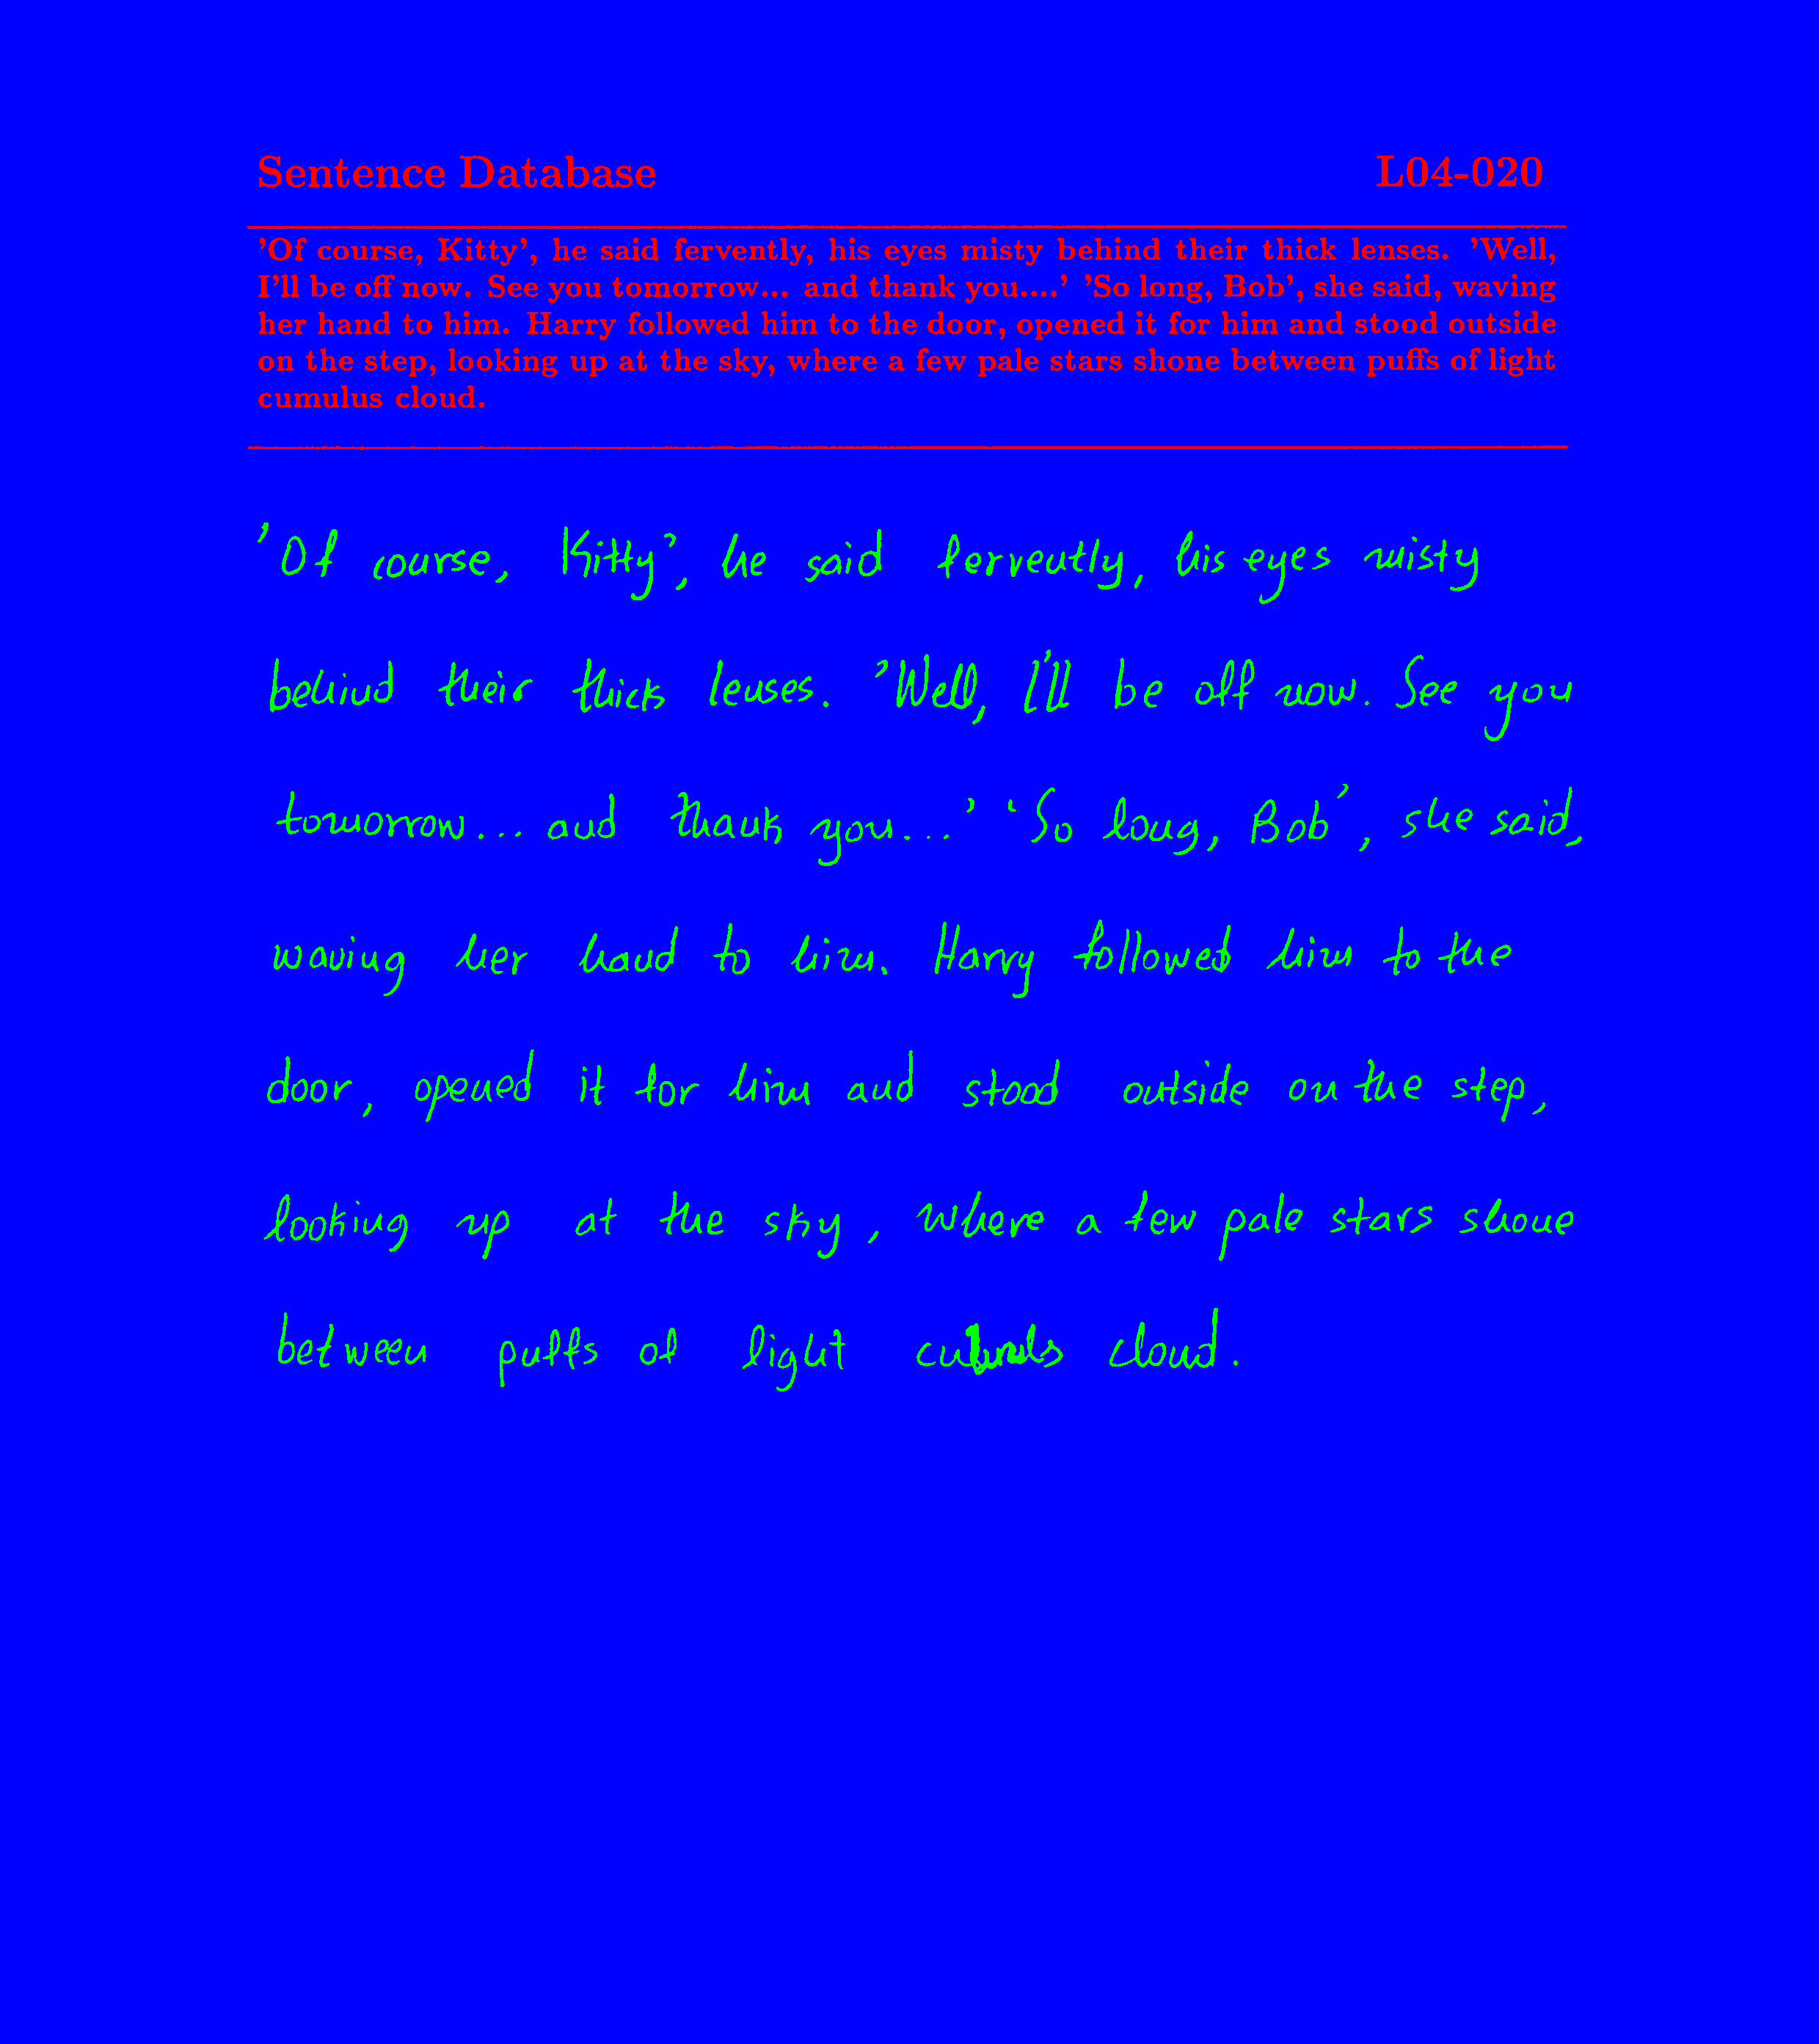 Sentence Database L04-020
'Of course, Kitty', he said fervently, his eyes misty behind their thick lenses. 'Well,
I'll be off now. See you tomorrow... and thank you....' 'So long, Bob', she said, waving
her hand to him. Harry followed him to the door, opened it for him and stood outside
on the step, looking up at the sky, where a few pale stars shone between puffs of light
cumulus cloud.
'Of course, Kitty', he said fervently, his eyes misty
behind their thick lenses. 'Well, I'll be off now. See you
tomorrow... and thank you...' 'So long, Bob', she said,
waving her hand to him. Harry followed him to the
door, opened it for him and stood outside on the step,
looking up at the sky, where a few pale stars shone
between puffs of light cloud.